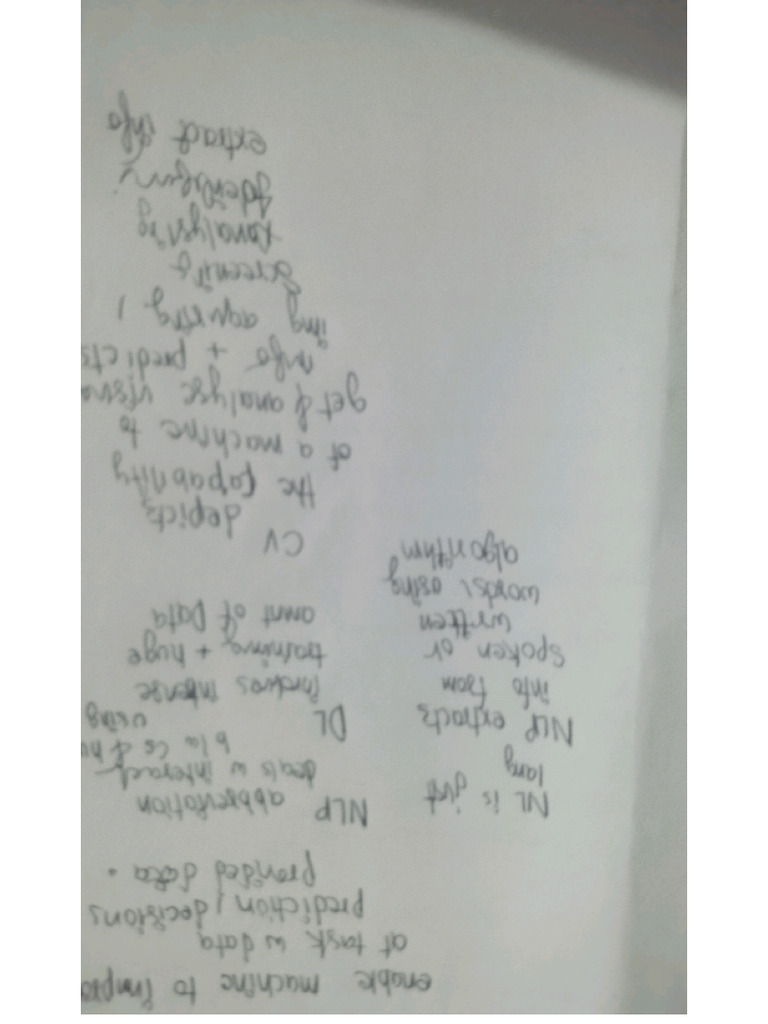 enable machine to
at task w data
prediction, decisions
provided data.
NL is just
lang
NLP extracts
info from
spoken or
written
words, using
algorithm
NLP abbreviation
deals w interact
b/w Cs & hu
using
DL
involves intense
training + huge
amnt of Data
CV
depicts
the capability
of a machine to
get & analyse
info + predicts
img aquiring,
screening
analysing
extract info